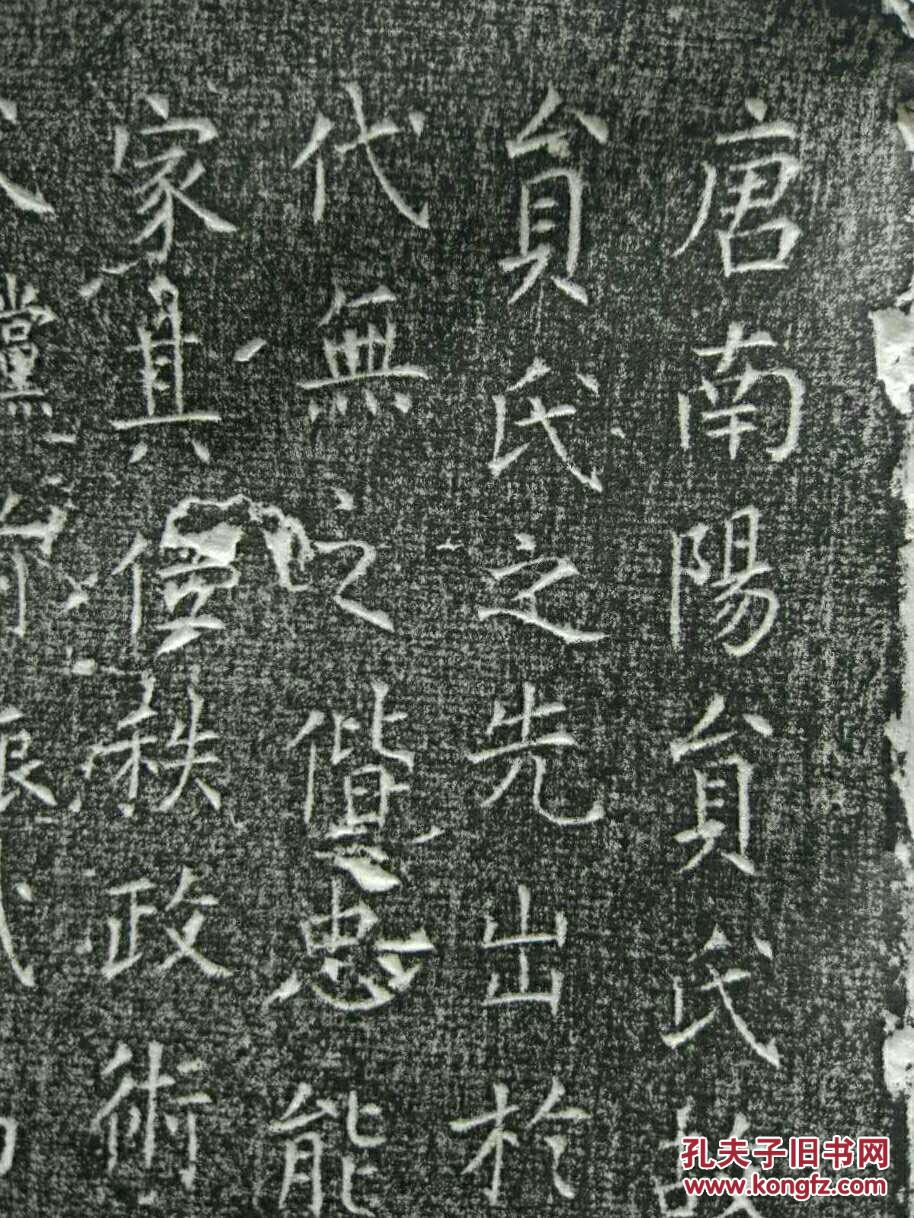 唐南陽貟氏故
貟氏之先出於
代無之偕忠能
家具位秩政術
黨
孔夫子旧书网
www.kongfz.com